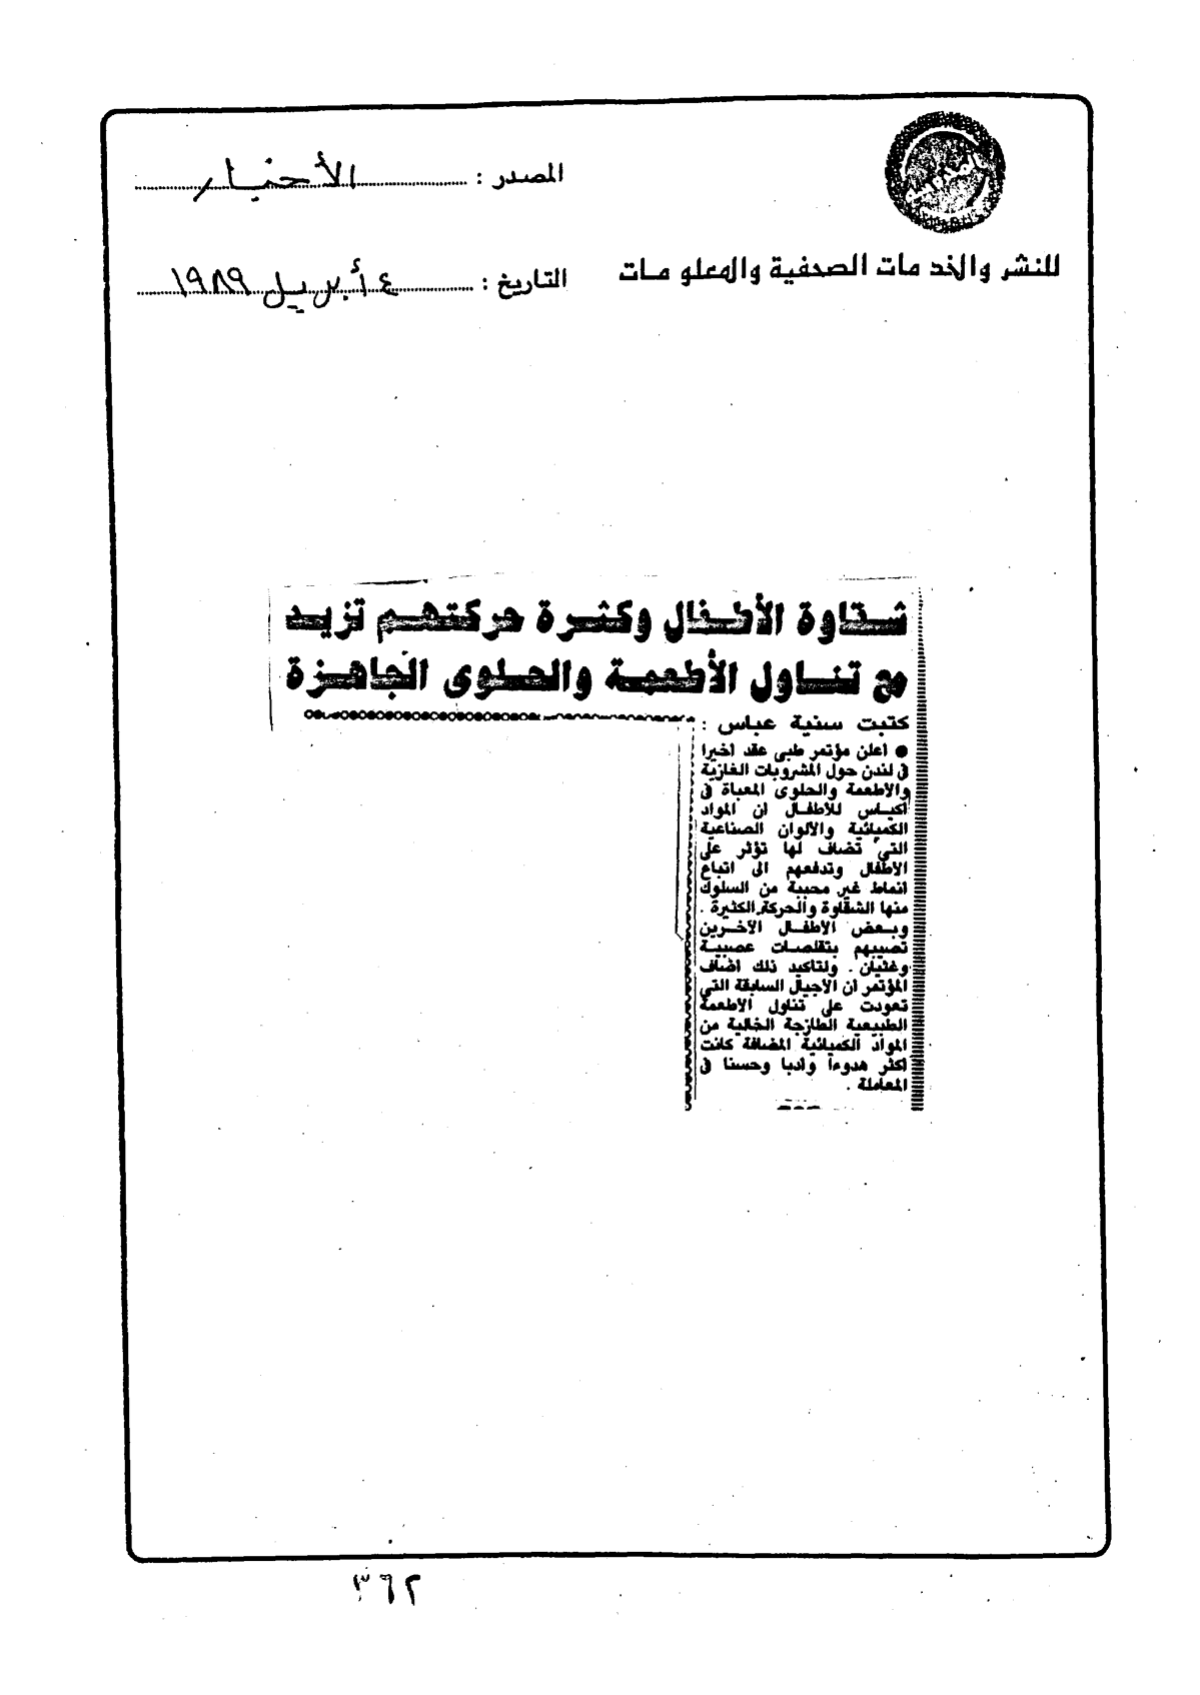 المصدر : الأخبار
للنشر والخدمات الصحفية والمعلومات
التاريخ : ٤ أبريل ١٩٨٩
شقاوة الأطفال وكثرة حركتهم تزيد
مع تناول الأطعمة والحلوى الجاهزة
كتبت سنية عباس :
● اعلن مؤتمر طبى عقد اخيرا
فى لندن حول المشروبات الغازية
والاطعمة والحلوى المعباة فى
اكياس للاطفال ان المواد
الكميائية والالوان الصناعية
التى تضاف لها تؤثر على
الاطفال وتدفعهم الى اتباع
انماط غير محببة من السلوك
منها الشقاوة والحركة الكثيرة .
وبعض الاطفال الآخرين
تصيبهم بتقلصات عصبية
وغثيان . ولتاكيد ذلك اضاف
المؤتمر ان الاجيال السابقة التى
تعودت على تناول الاطعمة
الطبيعية الطازجة الخالية من
المواد الكميائية المضافة كانت
اكثر هدوءا وادبا وحسنا فى
المعاملة .
٣٦٢